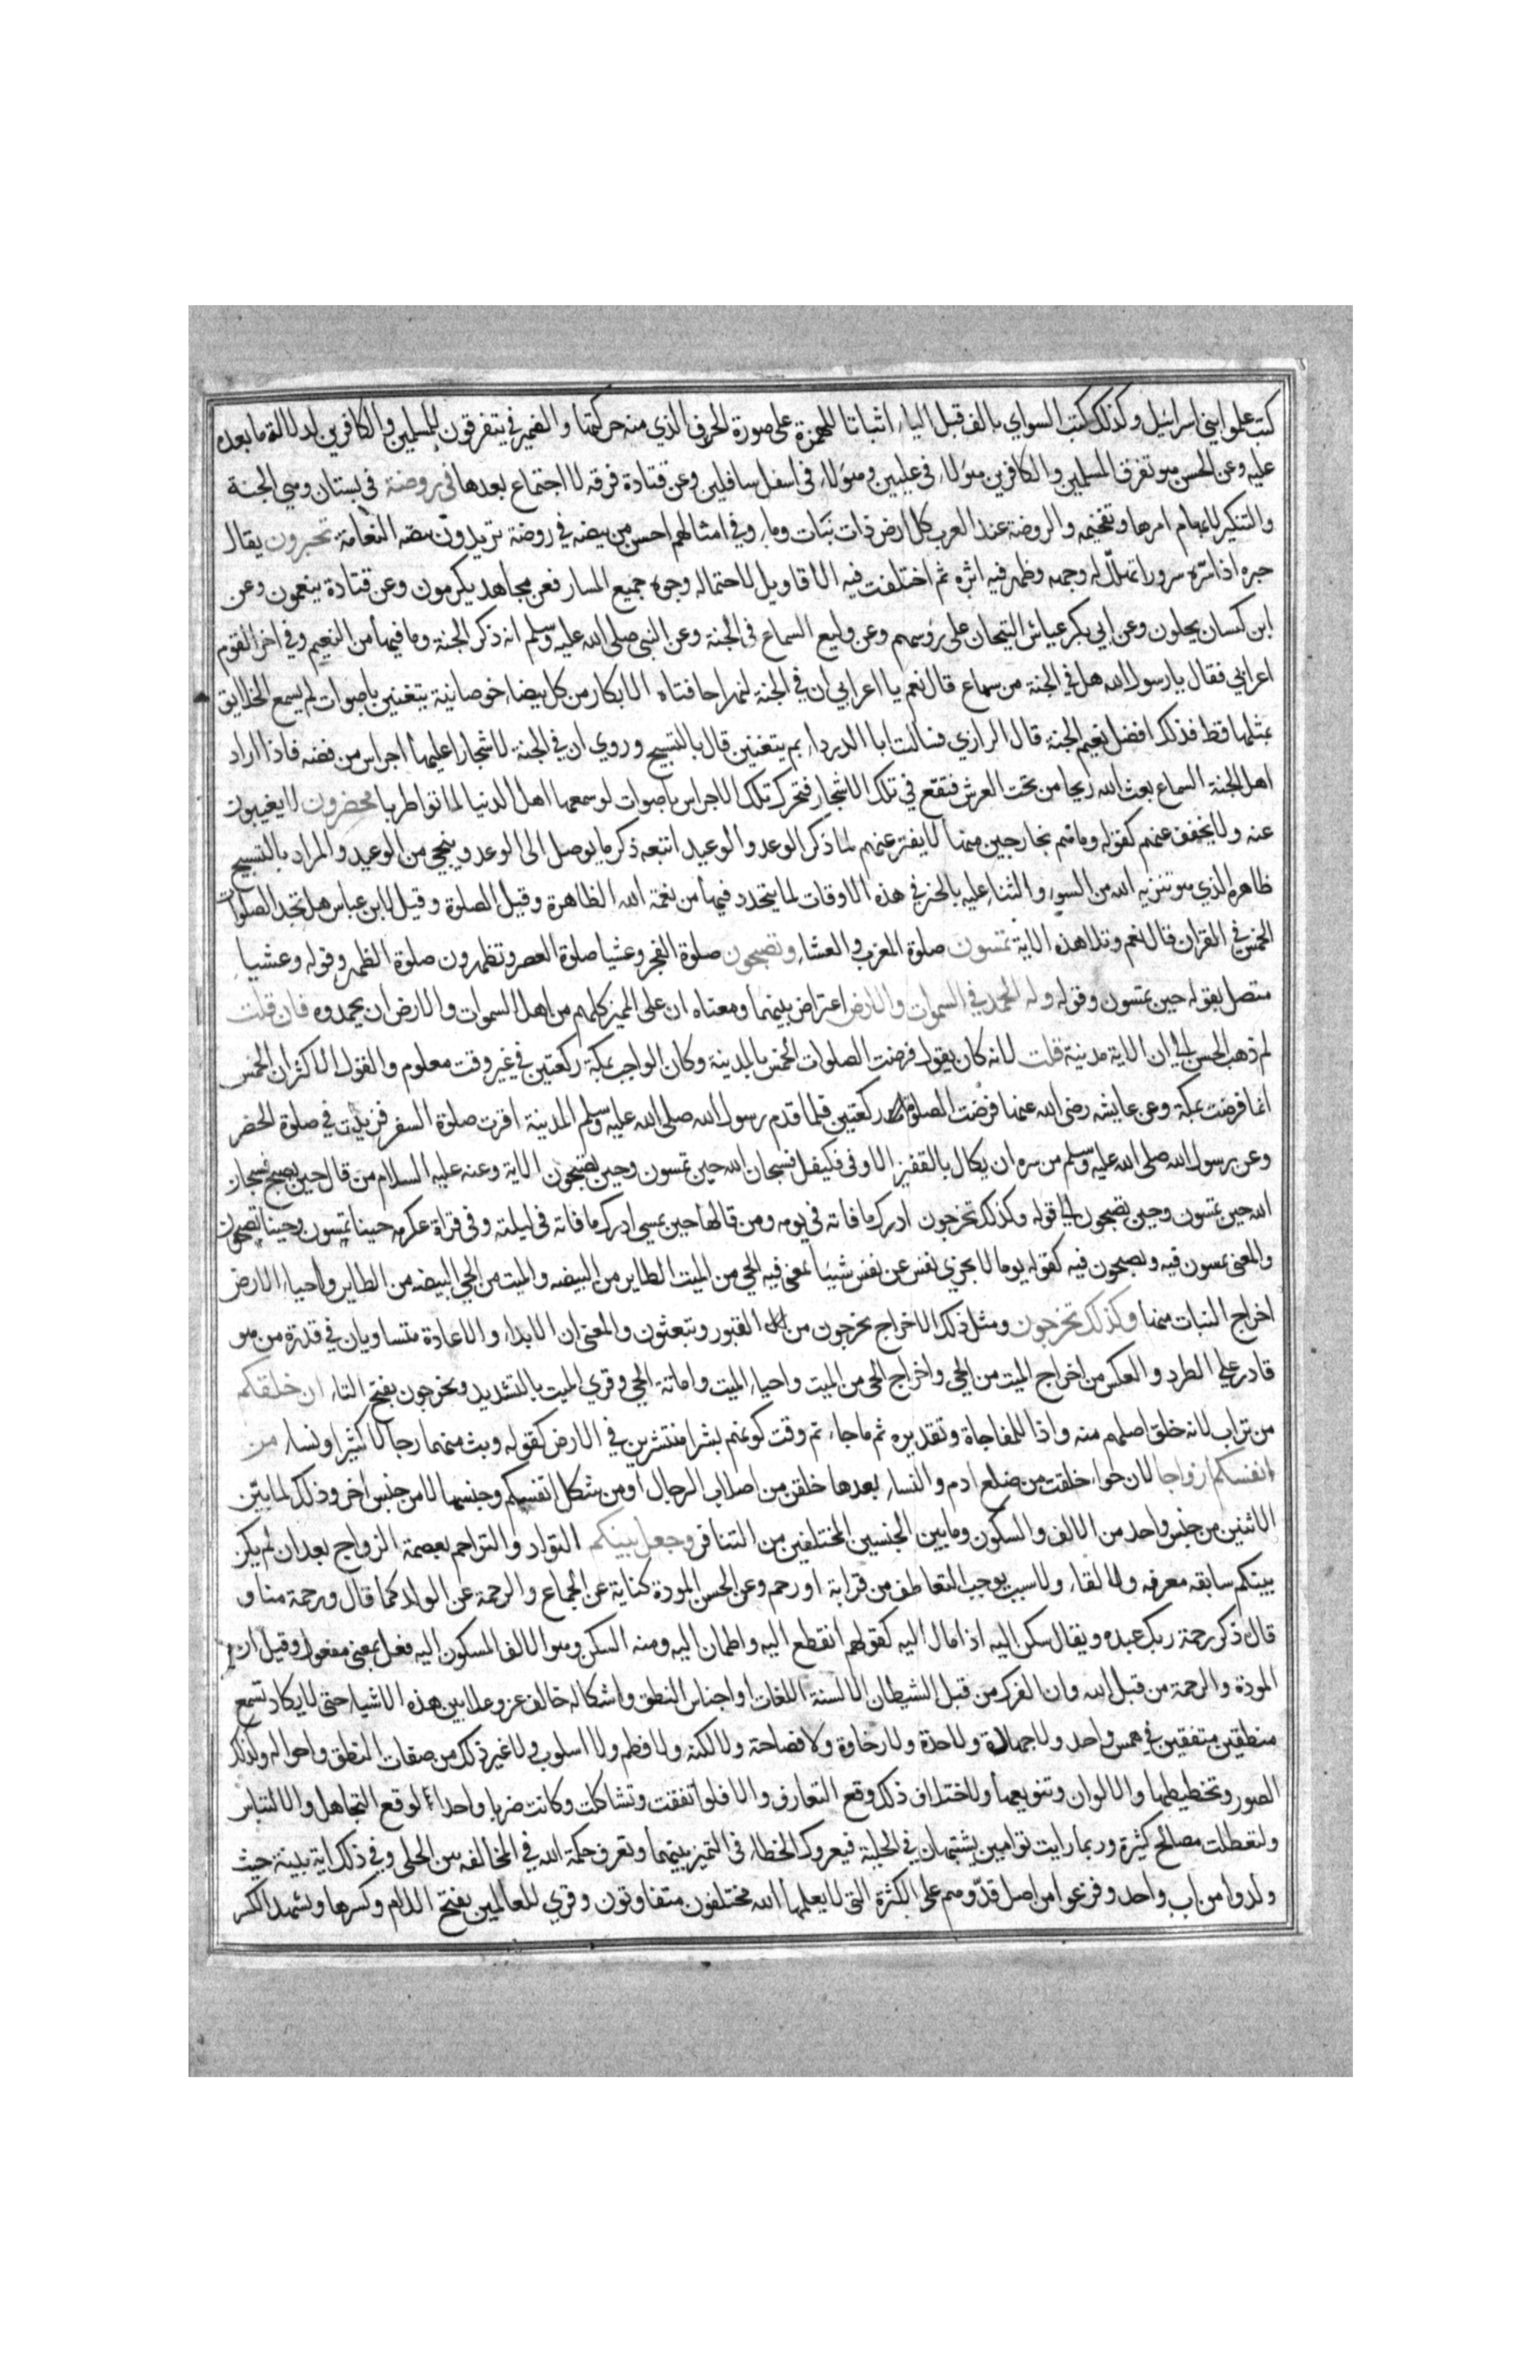 كتب علموا بني اسرائيل وكذلك كتب السواي بالف قبل الياء اثباتا للهمزة على صورة الحرف الذي منه حركتها والضمير في يتفرقون للمسلمين والكافرين لدلالة ما بعده
عليه وعن الحسن هو تفرق المسلمين والكافرين هؤلاء في عليين وهؤلاء في اسفل سافلين وعن قتادة فرقه لا اجتماع بعدها في روضة في بستان وهي الجنة
والتنكير لابهام امرها وتفخيمه والروضة عند العرب كل ارض ذات نبات وماء وفي امثالهم احسن من بيضه في روضة تريدون بيضه النعامة تحبرون يقال
حبره اذا سره سرورا تهلل له وجهه وظهر فيه اثره ثم اختلفت فيه الاقاويل لاحتماله وجوه جميع المسار فعن مجاهد يكرمون وعن قتادة ينعمون وعن
ابن كيسان يحلون وعن ابي بكر عياش التيجان على رؤسهم وعن وكيع السماع في الجنة وعن النبي صلى الله عليه وسلم انه ذكر الجنة وما فيها من النعيم وفي اخر القوم
اعرابي فقال يا رسول الله هل في الجنة من سماع قال نعم يا اعرابي ان في الجنة لنهرا حافتاه الابكار من كل بيضاء خوصانية يتغنين باصوات لم يسمع الخلايق
بمثلها قط فذلك افضل نعيم الجنة قال الرازي فسالت ابا الدرداء بم يتغنين قال بالتسبيح وروي ان في الجنة لاشجارا عليها اجراس من فضه فاذا اراد
اهل الجنة السماع بعث الله ريحا من تحت العرش فتقع في تلك الاشجار فتحرك تلك الاجراس باصوات لو سمعها اهل الدنيا لماتوا طربا محضرون لا يغيبون
عنه ولا يخفف عنهم كقوله وما هم بخارجين منها لا يفتر عنهم لما ذكر الوعد والوعيد اتبعه ذكر ما يوصل الى الوعد وينجي من الوعيد والمراد بالتسبيح
ظاهره الذي هو تنزيه الله من السوء والثناء عليه بالخير في هذه الاوقات لما يتجدد فيها من نعمة الله الظاهرة وقيل الصلوة وقيل لابن عباس هل تجد الصلوات
الخمس في القران قال نعم وتلا هذه الاية تمسون صلوة المغرب والعشاء وتصبحون صلوة الفجر وعشيا صلوة العصر وتظهرون صلوة الظهر وقوله وعشيا
متصل بقوله حين تمسون وقوله وله الحمد في السموات والارض اعتراض بينهما ومعناه ان على المميز كلهم من اهل السموات والارض ان يحمدوه فان قلت
لم ذهب الحسن الى ان الاية مدنية قلت لانه كان يقول فرضت الصلوات الخمس بالمدينة وكان الواجب بمكة ركعتين في غير وقت معلوم والقول الاكثر ان الخمس
انما فرضت بمكة وعن عايشه رضي الله عنها فرضت الصلوة ركعتين فلما قدم رسول الله صلى الله عليه وسلم المدينة اقرت صلوة السفر فزيدت في صلوة الحضر
وعن رسول الله صلى الله عليه وسلم من سره ان يكال بالقفيز الاوفى فليقل فسبحان الله حين تمسون وحين تصبحون الاية وعنه عليه السلام من قال حين يصبح فسبحان
الله حين تمسون وحين تصبحون الى قوله وكذلك تخرجون ادرك ما فاته في يومه ومن قالها حين يمسي ادرك ما فاته في ليلته وفي قراة عكرمه حينا تمسون وحينا تصبحون
والمعنى تمسون فيه وتصبحون فيه كقوله يوما لا تجزي نفس عن نفس شيئا بمعنى فيه الحي من الميت الطاير من البيضه والميت من الحي البيضه من الطاير واحياء الارض
اخراج النبات منها وكذلك تخرجون ومثل ذلك الاخراج تخرجون من القبور وتبعثون والمعنى ان الابداء والاعادة متساويان في قدرة من هو
قادر على الطرد والعكس من اخراج الميت من الحي واخراج الحي من الميت واحياء الميت واماتة الحي وقري الميت بالتشديد وتخرجون بفتح التاء ان خلقكم
من تراب لانه خلق اصلهم منه واذا للمفاجاة وتقديره ثم فاجاتم وقت كونكم بشرا منتشرين في الارض كقوله وبث منهما رجالا كثيرا ونساء من
انفسكم ازواجا لان حوا خلقت من ضلع ادم والنساء بعدها خلقن من اصلاب الرجال او من شكل انفسكم وجنسها لا من جنس اخر وذلك لما بين
الاثنين من جنس واحد من الالف والسكون وما بين الجنسين المختلفين من التنافر وجعل بينكم التواد والتراحم بعصمة الزواج بعد ان لم يكن
بينكم سابقه معرفه ولا لقاء ولا سبب يوجب التعاطف من قرابة او رحم وعن الحسن المودة كناية عن الجماع والرحمة عن الولد كما قال ورحمة منا و
قال ذكر رحمة ربك عبده ويقال سكن اليه اذا مال اليه كقولهم انقطع اليه واطمان اليه ومنه السكن وهو الالف المسكون اليه فعل بمعنى مفعول وقيل ان
المودة والرحمة من قبل الله وان الفرك من قبل الشيطان الالسنة اللغات او اجناس النطق واشكاله خالف عز وعلا بين هذه الاشياء حتى لا يكاد تسمع
منطقين متفقين في همس واحد ولا جهارة ولا حدة ولا رخاوة ولا فصاحة ولا لكنة ولا نظم ولا اسلوب ولا غير ذلك من صفات النطق واحواله وكذلك
الصور وتخطيطها والالوان وتنويعها ولاختلاف ذلك وقع التعارف والا فلو اتفقت وتشاكلت وكانت ضربا واحدا لوقع التجاهل والالتباس
ولتعطلت مصالح كثيرة وربما رايت توامين يشتبهان في الحلية فيعروك الخطاء في التميز بينهما وتعرف حكمة الله في المخالفه بين الحلى وفي ذلك اية بينة حيث
ولدوا من اب واحد وفرعوا من اصل فذ وهم على الكثرة التي لا يعلمها الله مختلفون متفاوتون وقري للعالمين بفتح اللام وكسرها ويشهد للكسر